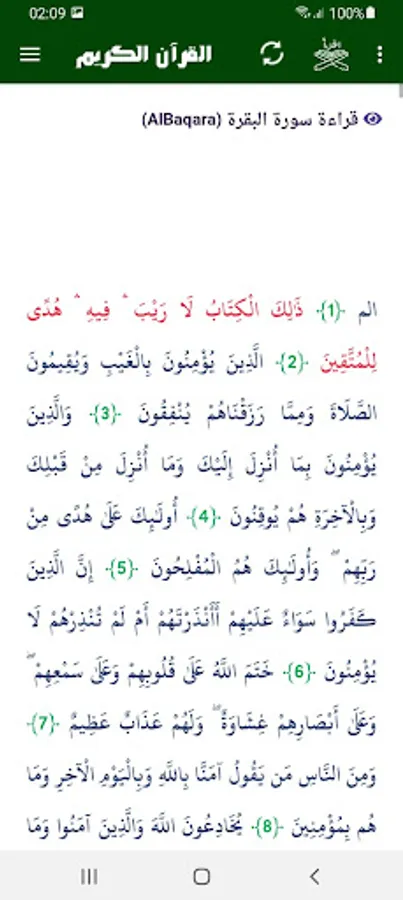 02:09 100%
القرآن الكريم
إقرأ
قراءة سورة البقرة (AlBaqara)
الم ‎{1}‎ ذَٰلِكَ الْكِتَابُ لَا رَيْبَ ۛ فِيهِ ۛ هُدًى
لِلْمُتَّقِينَ ‎{2}‎ الَّذِينَ يُؤْمِنُونَ بِالْغَيْبِ وَيُقِيمُونَ
الصَّلَاةَ وَمِمَّا رَزَقْنَاهُمْ يُنْفِقُونَ ‎{3}‎ وَالَّذِينَ
يُؤْمِنُونَ بِمَا أُنْزِلَ إِلَيْكَ وَمَا أُنْزِلَ مِنْ قَبْلِكَ
وَبِالْآخِرَةِ هُمْ يُوقِنُونَ ‎{4}‎ أُولَٰئِكَ عَلَىٰ هُدًى مِنْ
رَبِّهِمْ ۖ وَأُولَٰئِكَ هُمُ الْمُفْلِحُونَ ‎{5}‎ إِنَّ الَّذِينَ
كَفَرُوا سَوَاءٌ عَلَيْهِمْ أَأَنْذَرْتَهُمْ أَمْ لَمْ تُنْذِرْهُمْ لَا
يُؤْمِنُونَ ‎{6}‎ خَتَمَ اللَّهُ عَلَىٰ قُلُوبِهِمْ وَعَلَىٰ سَمْعِهِمْ ۖ
وَعَلَىٰ أَبْصَارِهِمْ غِشَاوَةٌ ۖ وَلَهُمْ عَذَابٌ عَظِيمٌ ‎{7}‎
وَمِنَ النَّاسِ مَن يَقُولُ آمَنَّا بِاللَّهِ وَبِالْيَوْمِ الْآخِرِ وَمَا
هُم بِمُؤْمِنِينَ ‎{8}‎ يُخَادِعُونَ اللَّهَ وَالَّذِينَ آمَنُوا وَمَا